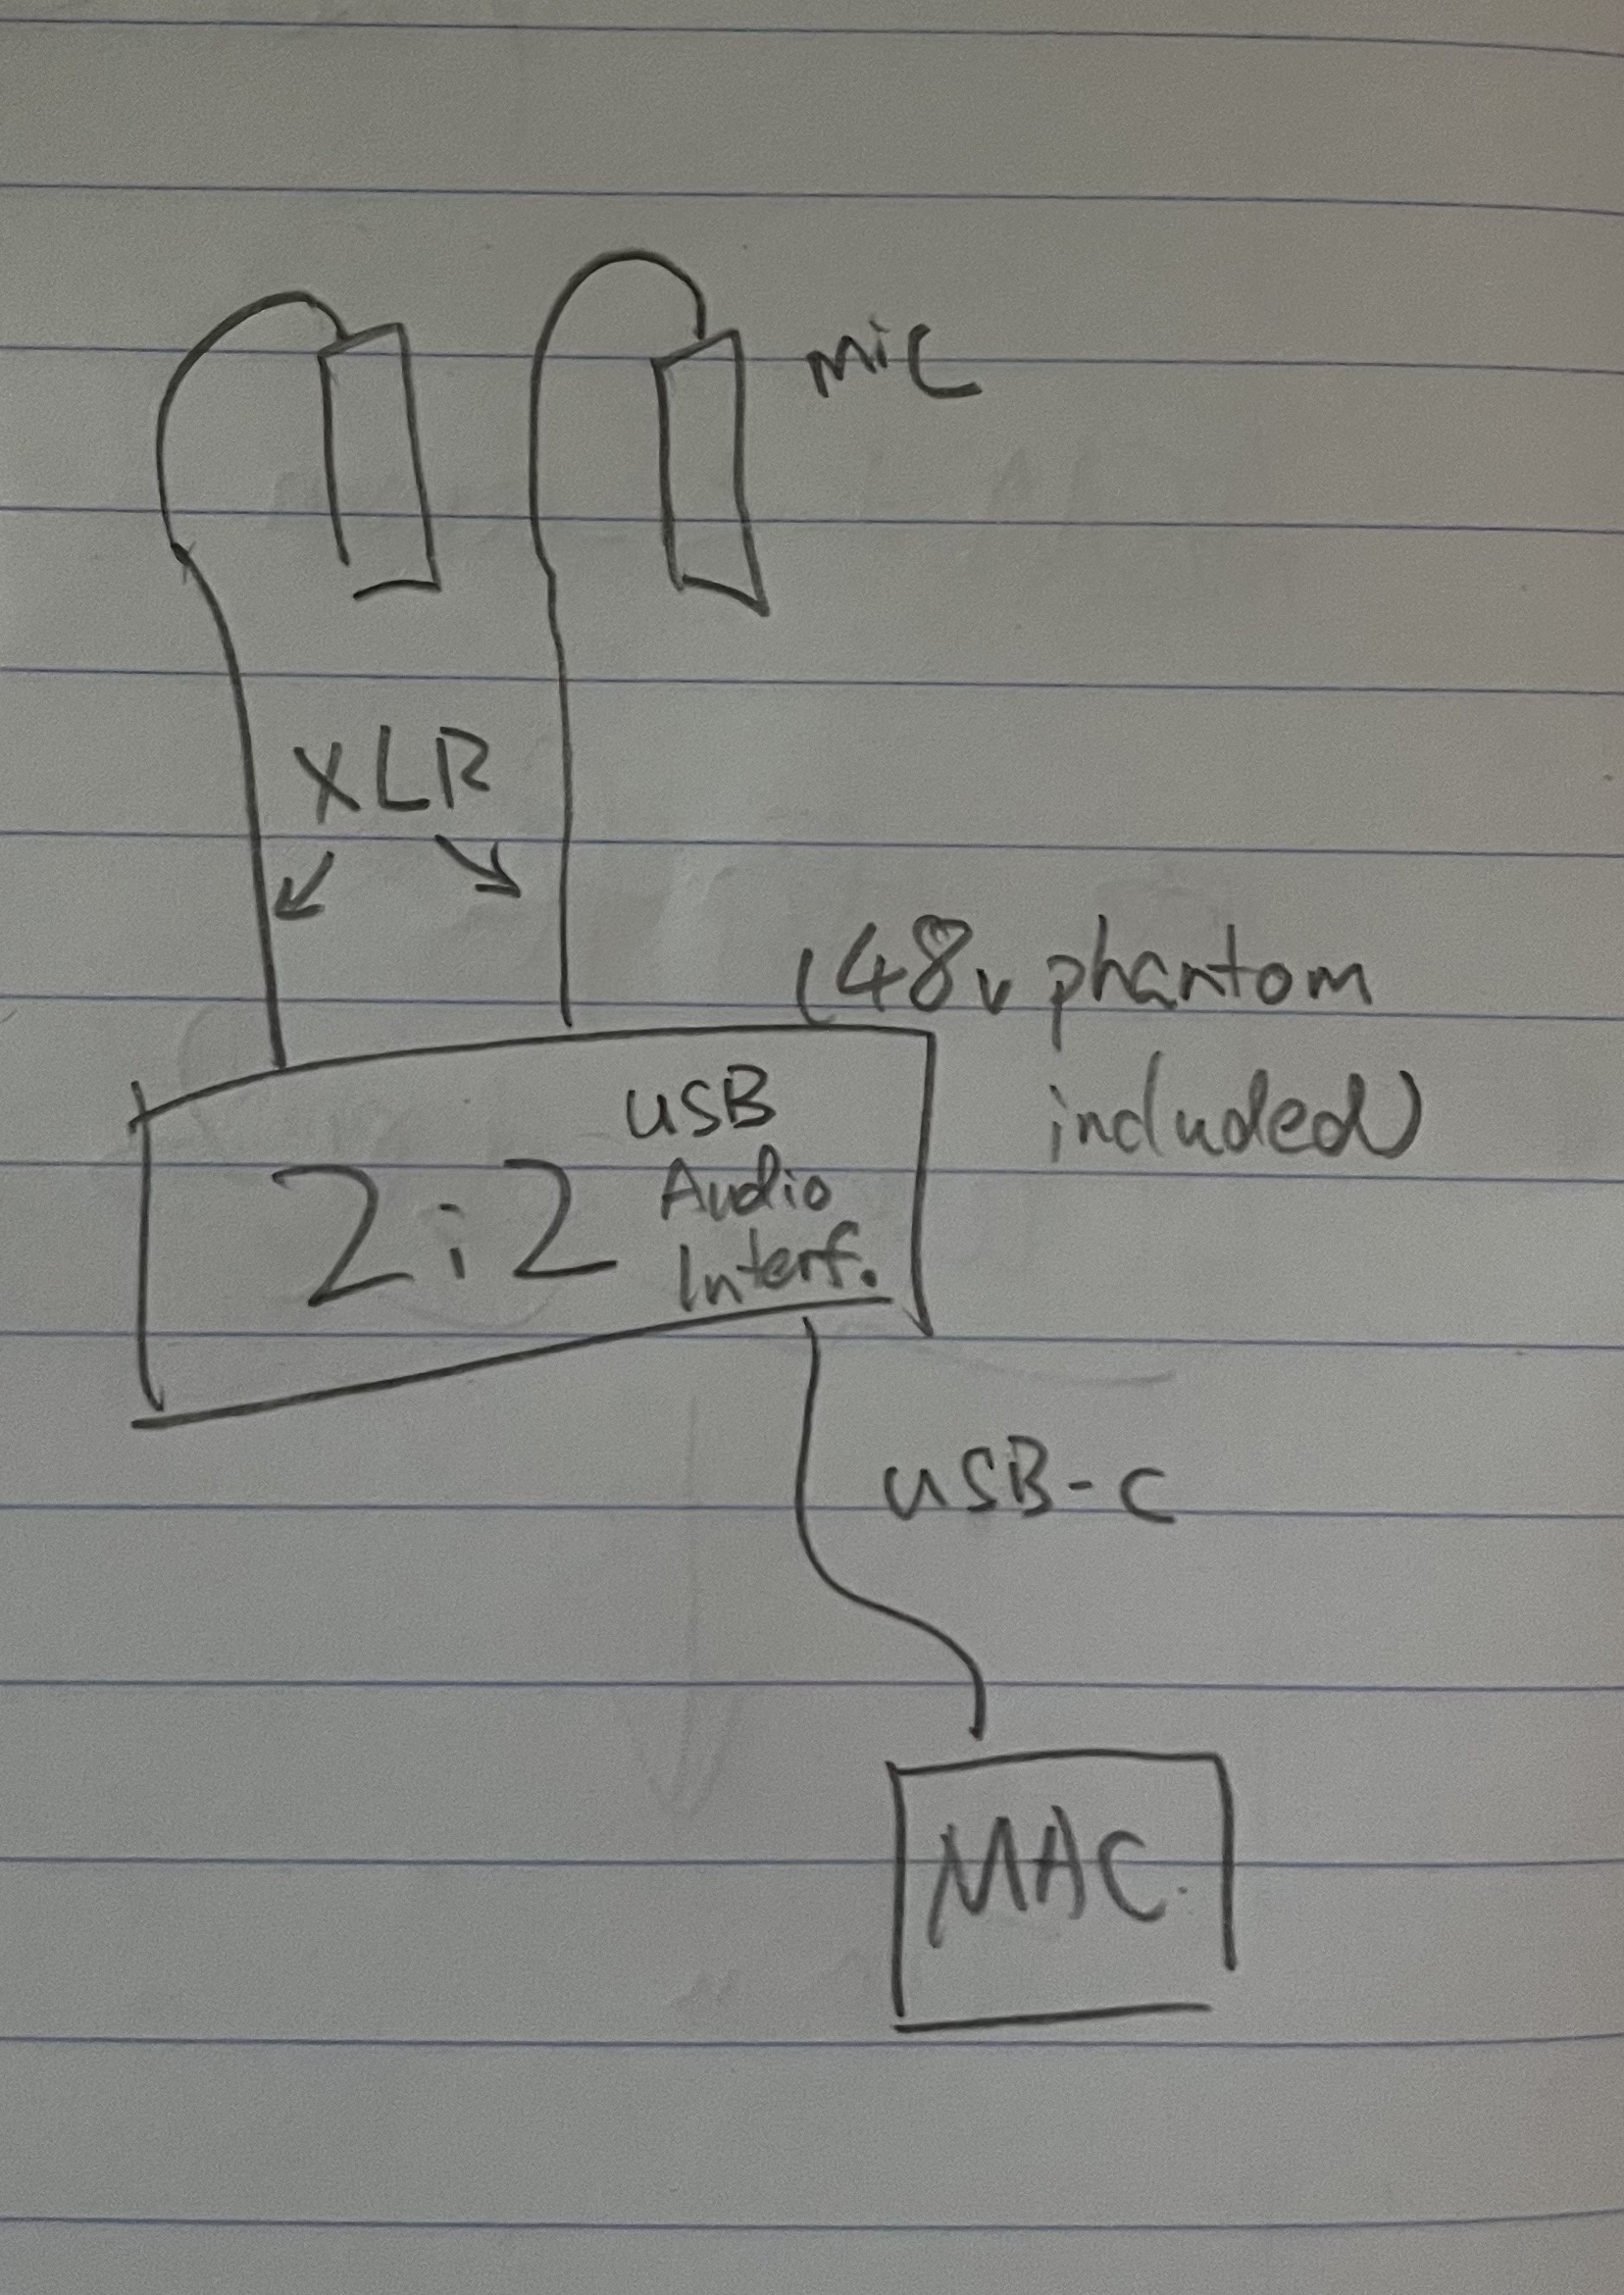 mic
XLR
(48v phantom
included)
USB
2i2 Audio
Interf.
USB-C
MAC